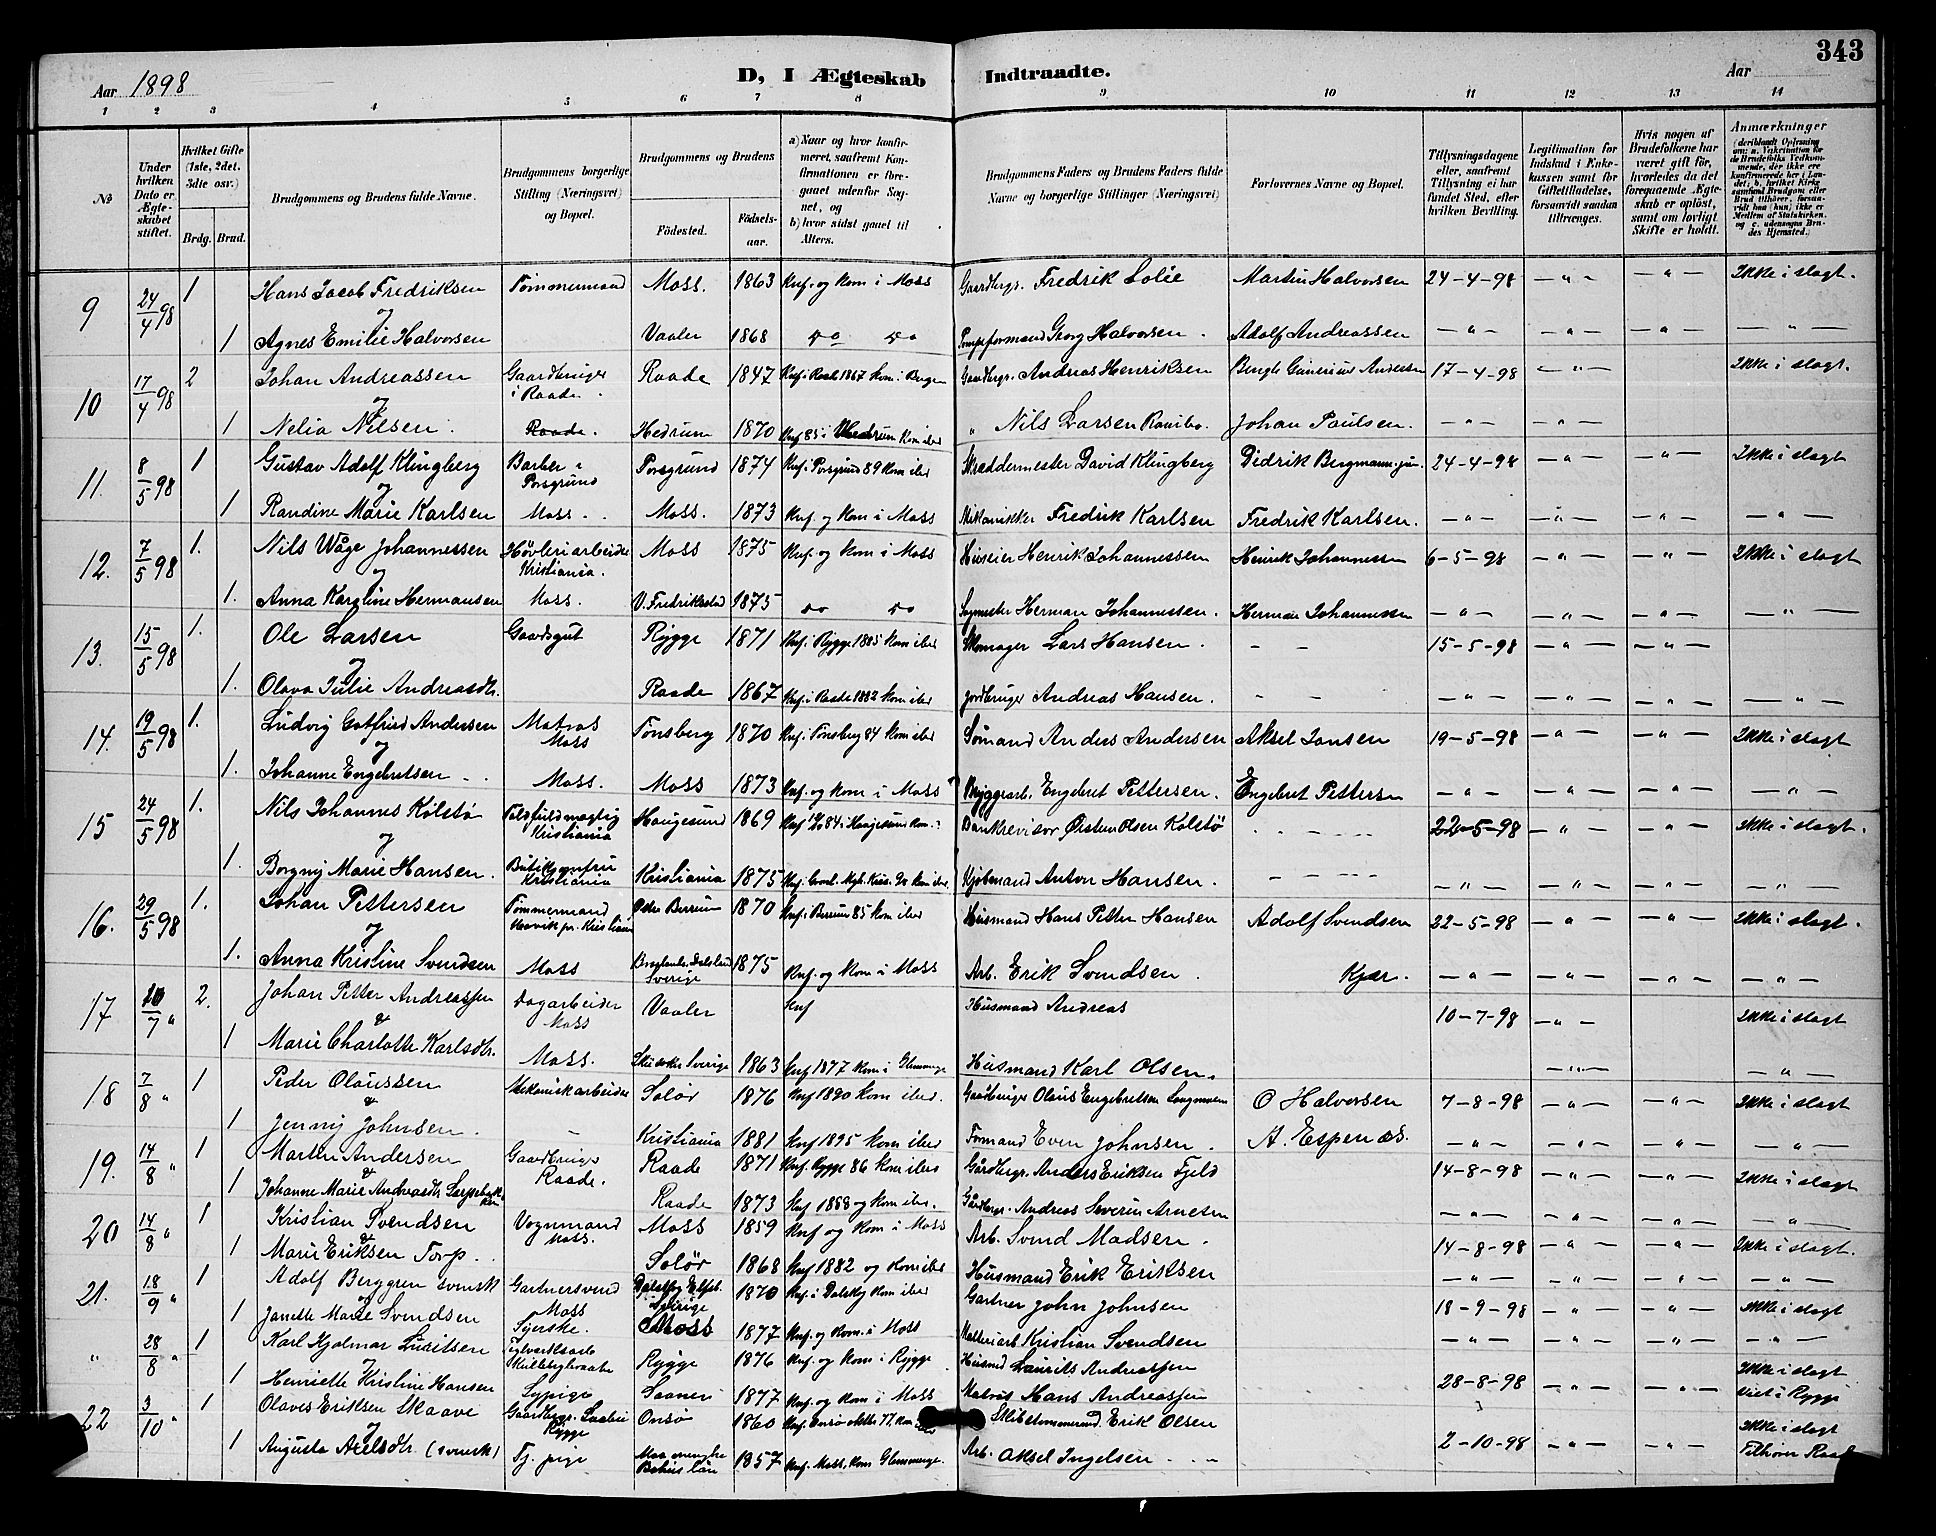 343
Aar 1898 D, I Ægteskab Indtraadte. Aar
1 2 3 4 5 6 7 8 9 10 11 12 13 14
№
Under hvilken Dato er Ægteskabet stiftet.
Hvilket Gifte (1ste, 2det, 3die osv.)
Brdg. Brud.
Brudgommens og Brudens fulde Navne.
Brudgommens borgerlige Stilling (Næringsvei) og Bopæl.
Brudgommens og Brudens
Fødested. Fødselsaar.
a) Naar og hvor konfirmeret, saafremt Konfirmationen er foregaaet udenfor Sognet, og
b) hvor sidst gaaet til Alters.
Brudgommens Faders og Brudens Faders fulde Navne og borgerlige Stillinger (Næringsvei)
Forlovernes Navne og Bopæl.
Tillysningsdagene eller, saafremt Tillysning ei har fundet Sted, efter hvilken Bevilling.
Legitimation for Indskud i Enkekassen samt for Giftetilladelse, forsaavidt saadan tiltrænges.
Hvis nogen af Brudefolkene har været gift før, hvorledes da det foregaaende Ægteskab er opløst, samt om lovligt Skifte er holdt.
Anmærkninger
9 24/4 98 1 Hans Jacob Fredriksen Tømmermand Moss. 1863 Knf. og kom i Moss Gaardbrgr. Fredrik Lolie Martin Halvorsen 24-4-98 — " — — " — Ikke i slagt.
og
1 Agnes Emilie Halvorsen Vaaler 1868 do do Georg Halvorsen. Adolf Andreassen — " — — " — — " — — " —
10 17/4 98 2 Johan Andreassen Gaardbruger i Raade. Raade 1847 Knf. i Raade 1867 kom i Gaardbgr. Andreas Henriksen Bengt Andersen 17-4-98 — " — Ikke i slagt.
og
1 Nelia Nilsen. Raade. Hedrum 1870 Knf 85 i Hedrum kom ibd " Nils Larsen Johan Paulsen. — " — — " —
11. 8/5 98 1 Gustav Adolf Klingberg Barber i Porsgrund Porsgrund 1874 Knf. i Porsgrund 89 kom ibd Skræddermester David Klingberg Didrik Bergmann jun. 24-4-98 — " — — " — Ikke i slagt
og
1 Randine Marie Karlsen Moss. Moss. 1873 Knf. og kom i Moss Mekanikker Fredrik Karlsen Fredrik Karlsen. — " — — " — — " — — " —
12. 7/5 98 1. Nils Wåge Johannessen Høvleriarbeider Kristiania. Moss 1875 Knf. og kom i Moss Huseier Henrik Johannessen Henrik Johannessen 6-5-98 — " — — " — Ikke i slagt
og
1. Anna Karoline Hermansen Moss. V. Fredrikstad 1875 do do Herman Johannessen. Herman Johannessen — " — — " — — " — — " —
13. 15/5 98 1. Ole Larsen Gaardsgut Rygge 1871 Knf. i Rygge 1885 kom ibd Skomager Lars Hansen. - - 15-5-98 — " — — " —
og
1. Olava Julie Andreasdtr. Raade 1867 Knf. i Raade 1882 kom ibd Jordbruger Andreas Hansen. - - — " — — " — — " — — " —
14. 19/5 98 1. Ludvig Gotfried Andersen Matros Moss Tønsberg 1870 Knf. i Tønsberg 84 kom ibd Sømand Anders Andersen Aksel Jansen 19-5-98 — " — — " — Ikke i slagt
og
1. Johanne Engebretsen Moss. Moss 1873 Knf. og kom i Moss Bryggearb. Engebret Pettersen. Engebret Pettersen — " — — " — — " — — " —
15 24/5 98 1. Nils Johannes Kolstø Kristiania Haugesund 1869 Knf 84 i Haugesund kom Bankrevisor Østen Olsen Kolstø - - - - 22-5-98 — " — — " — Ikke i slagt.
og
1. Borgny Marie Hansen. Butikjomfru Kristiania Kristiania 1875 Kjøbmand Anton Hansen. - - - - — " — — " — — " — — " —
16. 29/5 98 1. Johan Pettersen Tømmermand Høvik pr. Kristiania Østre Berum 1870 Knf. i Berum 85 kom ibd Husmand Hans Petter Hansen Adolf Svendsen 22-5-98 — " — — " — Ikke i slagt.
og
1. Anna Kristine Svendsen Moss Dalsland Sverige 1875 Knf. og kom i Moss Arb. Erik Svendsen. Kjær. — " — — " — — " — — " —
17 10/7 " 2. Johan Petter Andreassen Dagarbeider Moss Vaaler Knf Husmand Andreas 10-7-98 — " — Ikke i slagt
&
1 Marie Charlotte Karlsdtr. Moss. Sverige 1863 Knf 1877 kom i Glemminge Husmand Karl Olsen. — " — — " —
18 7/8 " 1 Peder Olaussen Mekanikarbeider Solør 1876 Knf 1890 kom ibd. Gaardbruger Olaus Engebretsen 7-8-98 O Halvorsen — " — — " — Ikke i slagt
&
1 Jenny Johnsen. - Kristiania 1881 Knf 1895 kom ibd Formand Even Johnsen. A. Espenæs. — " — — " — — " — — " —
19. 14/8 " 1 Martin Andersen Gaardbruger Raade. Raade 1871 Knf. Rygge 86 kom ibd Gårdbrgr. Anders Eriksen Fjeld 14-8-98 — " — — " — Ikke i slagt
&
1 Johanne Marie Andreasdtr Raade 1873 Knf 1888 og kom ibd. Gårdbrgr. Andreas Severin Arnesen — " — — " — — " — — " —
20 14/8 " 1 Kristian Svendsen Vognmand Moss. Moss 1859 Knf og kom i Moss Arb. Svend Madsen. 14-8-98 — " — — " — Ikke i slagt.
&
1 Marie Eriksen Torp. Solør 1868 Knf 1882 og kom ibd Husmand Erik Eriksen — " — — " — — " — — " —
21. 18/9 " 1 Adolf Berggren svensk Gartnersvend Moss Sverige 1870 Knf. i Dalsby kom ibd Gartner John Johnsen 18-9-98 — " — — " — Ikke i slagt
og
1 Janette Marie Svendsen Syerske. Moss 1877 Knf. og kom. i Moss Kristian Svendsen — " — — " — — " — — " —
" 28/8 " 1 Karl Hjalmar Lauritsen Rygge 1876 Knf. og kom i Rygge Husmd Laurits Andreassen 28-8-98 — " — — " — Ikke i slagt
1 Henriette Kristine Hansen Sypige Saaner 1877 Knf. og kom i Moss Matros Hans Andreassen Viet i Rygge
22 3/10 " 1 Olaves Eriksen Skaave Gaardbgr. Rygge Onsø 1860 Skibstømmermd. Erik Olsen 2-10-98 — " — — " — Ikke i slagt
og
1 Augusta Axelsdtr. (svensk) Tj. pige Bohus län 1857 Knf. Moss, kom Glemminge. Arb. Aksel Ingelsen Tilhører Raade